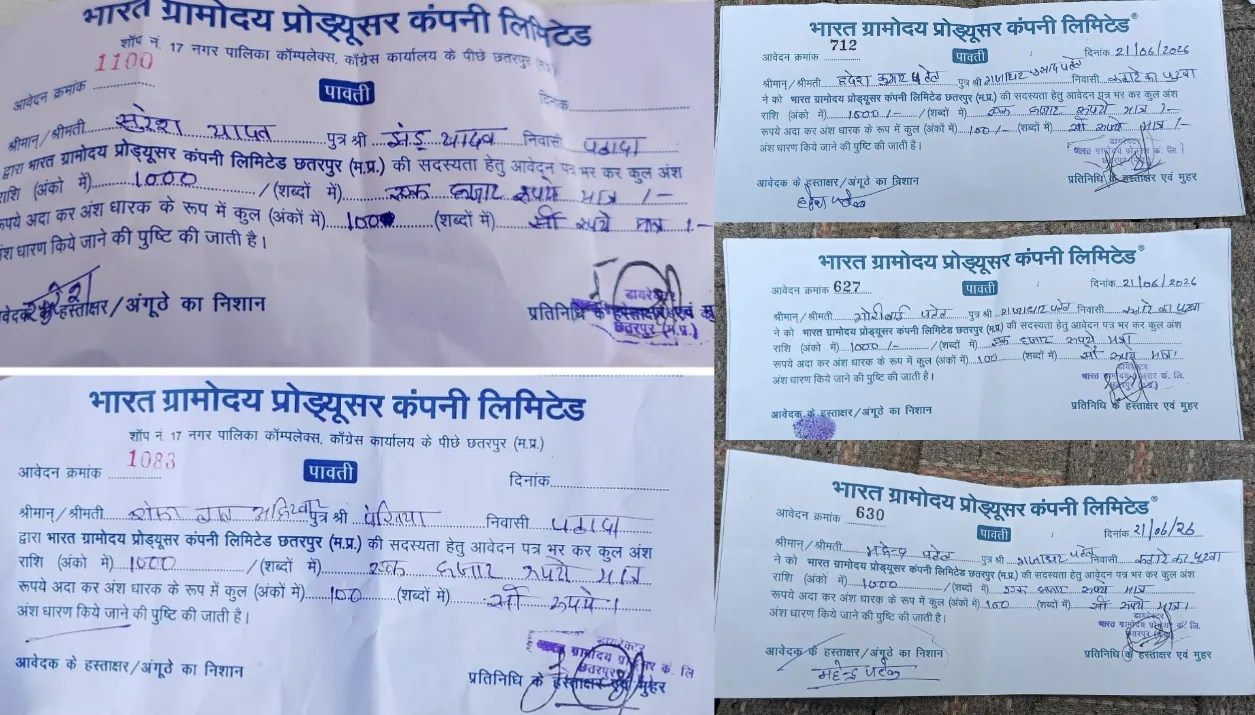 भारत ग्रामोदय प्रोड्यूसर कंपनी लिमिटेड
शॉप नं. 17 नगर पालिका कॉम्पलेक्स, काँग्रेस कार्यालय के पीछे छतरपुर
1100
आवेदन क्रमांक
पावती
दिनांक
श्रीमान/श्रीमती सुरेश यादव पुत्र श्री यादव निवासी पठादा
द्वारा भारत ग्रामोदय प्रोड्यूसर कंपनी लिमिटेड छतरपुर (म.प्र.) की सदस्यता हेतु आवेदन पत्र भर कर कुल अंश
राशि (अंको में) 1000 /(शब्दों में) एक हजार रूपये मात्र /-
रूपये अदा कर अंश धारक के रूप में कुल (अंकों में) 100 (शब्दों में) सौ रूपये मात्र /-
अंश धारण किये जाने की पुष्टि की जाती है।
सुरेश
आवेदक के हस्ताक्षर/अंगूठे का निशान
प्रतिनिधि के हस्ताक्षर एवं मु
डायरेक्टर
छतरपुर (म.प्र.)
भारत ग्रामोदय प्रोड्यूसर कंपनी लिमिटेड
शॉप नं. 17 नगर पालिका कॉम्पलेक्स, काँग्रेस कार्यालय के पीछे छतरपुर (म.प्र.)
आवेदन क्रमांक 1083
पावती
दिनांक
श्रीमान/श्रीमती पुत्र श्री निवासी पठादा
द्वारा भारत ग्रामोदय प्रोड्यूसर कंपनी लिमिटेड छतरपुर (म.प्र.) की सदस्यता हेतु आवेदन पत्र भर कर कुल अंश
राशि (अंको में) 1000 /(शब्दों में) एक हजार रूपये मात्र
रूपये अदा कर अंश धारक के रूप में कुल (अंकों में) 100 (शब्दों में) सौ रूपये।
अंश धारण किये जाने की पुष्टि की जाती है।
डायरेक्टर
ग्रामोदय प्रो सर कं. लि
छतरपुर
आवेदक के हस्ताक्षर/अंगूठे का निशान
प्रतिनिधि के हस्ताक्षर एवं मुहर
भारत ग्रामोदय प्रोड्यूसर कंपनी लिमिटेड®
आवेदन क्रमांक 712
पावती
दिनांक 21/06/2026
श्रीमान/श्रीमती कुमार पटेल पुत्र श्री राजाधार प्रसाद पटेल निवासी का पुरवा
ने को भारत ग्रामोदय प्रोड्यूसर कंपनी लिमिटेड छतरपुर (म.प्र.) की सदस्यता हेतु आवेदन पत्र भर कर कुल अंश
राशि (अंको में) 1000/- /(शब्दों में) एक हजार रूपये मात्र /-
रूपये अदा कर अंश धारक के रूप में कुल (अंकों में) 100/- (शब्दों में) सौ रूपये मात्र /-
अंश धारण किये जाने की पुष्टि की जाती है।
डायरेक्टर
आवेदक के हस्ताक्षर/अंगूठे का निशान
प्रतिनिधि के हस्ताक्षर एवं मुहर
भारत ग्रामोदय प्रोड्यूसर कंपनी लिमिटेड®
आवेदन क्रमांक 627
पावती
दिनांक 21/06/2026
श्रीमान/श्रीमती गोरीबाई पटेल पुत्र श्री राजाधार पटेल निवासी का पुरवा
ने को भारत ग्रामोदय प्रोड्यूसर कंपनी लिमिटेड छतरपुर (म.प्र.) की सदस्यता हेतु आवेदन पत्र भर कर कुल अंश
राशि (अंको में) 1000/- /(शब्दों में) एक हजार रूपये मात्र
रूपये अदा कर अंश धारक के रूप में कुल (अंकों में) 100 (शब्दों में) सौ रूपये मात्र।
अंश धारण किये जाने की पुष्टि की जाती है।
डायरेक्टर
आवेदक के हस्ताक्षर/अंगूठे का निशान
प्रतिनिधि के हस्ताक्षर एवं मुहर
भारत ग्रामोदय प्रोड्यूसर कंपनी लिमिटेड®
आवेदन क्रमांक 630
पावती
दिनांक 21/06/26
श्रीमान/श्रीमती महेन्द्र पटेल पुत्र श्री राजाधार पटेल निवासी का पुरवा
ने को भारत ग्रामोदय प्रोड्यूसर कंपनी लिमिटेड छतरपुर (म.प्र.) की सदस्यता हेतु आवेदन पत्र भर कर कुल अंश
राशि (अंको में) 1000 /(शब्दों में) एक हजार रूपये मात्र
रूपये अदा कर अंश धारक के रूप में कुल (अंकों में) 100 (शब्दों में) सौ रूपये मात्र।
अंश धारण किये जाने की पुष्टि की जाती है।
डायरेक्टर
आवेदक के हस्ताक्षर/अंगूठे का निशान
महेन्द्र पटेल
प्रतिनिधि के हस्ताक्षर एवं मुहर